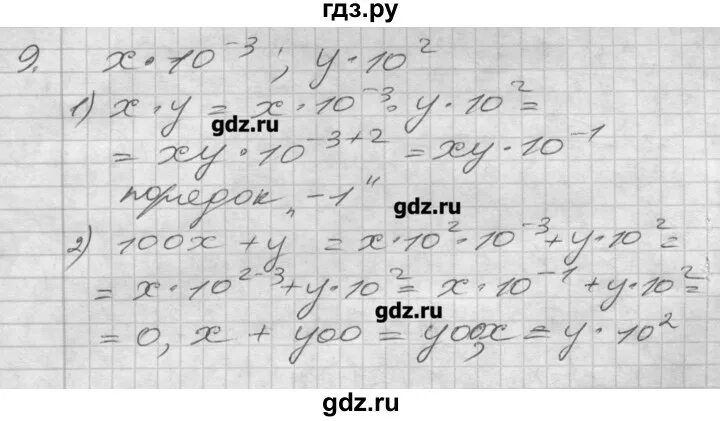 гдз.ру
9. x · 10⁻³ ; y · 10²
1) x · y = x · 10⁻³ · y · 10² =
gdz.ru
= xy · 10⁻³⁺² = xy · 10⁻¹
порядок „-1"
gdz.ru
2) 100x + y = x · 10² · 10⁻³ + y · 10² =
= x · 10²⁻³ + y · 10² = x · 10⁻¹ + y · 10² =
gdz.ru
= 0, x + y00 = y00,x = y · 10²
gdz.ru